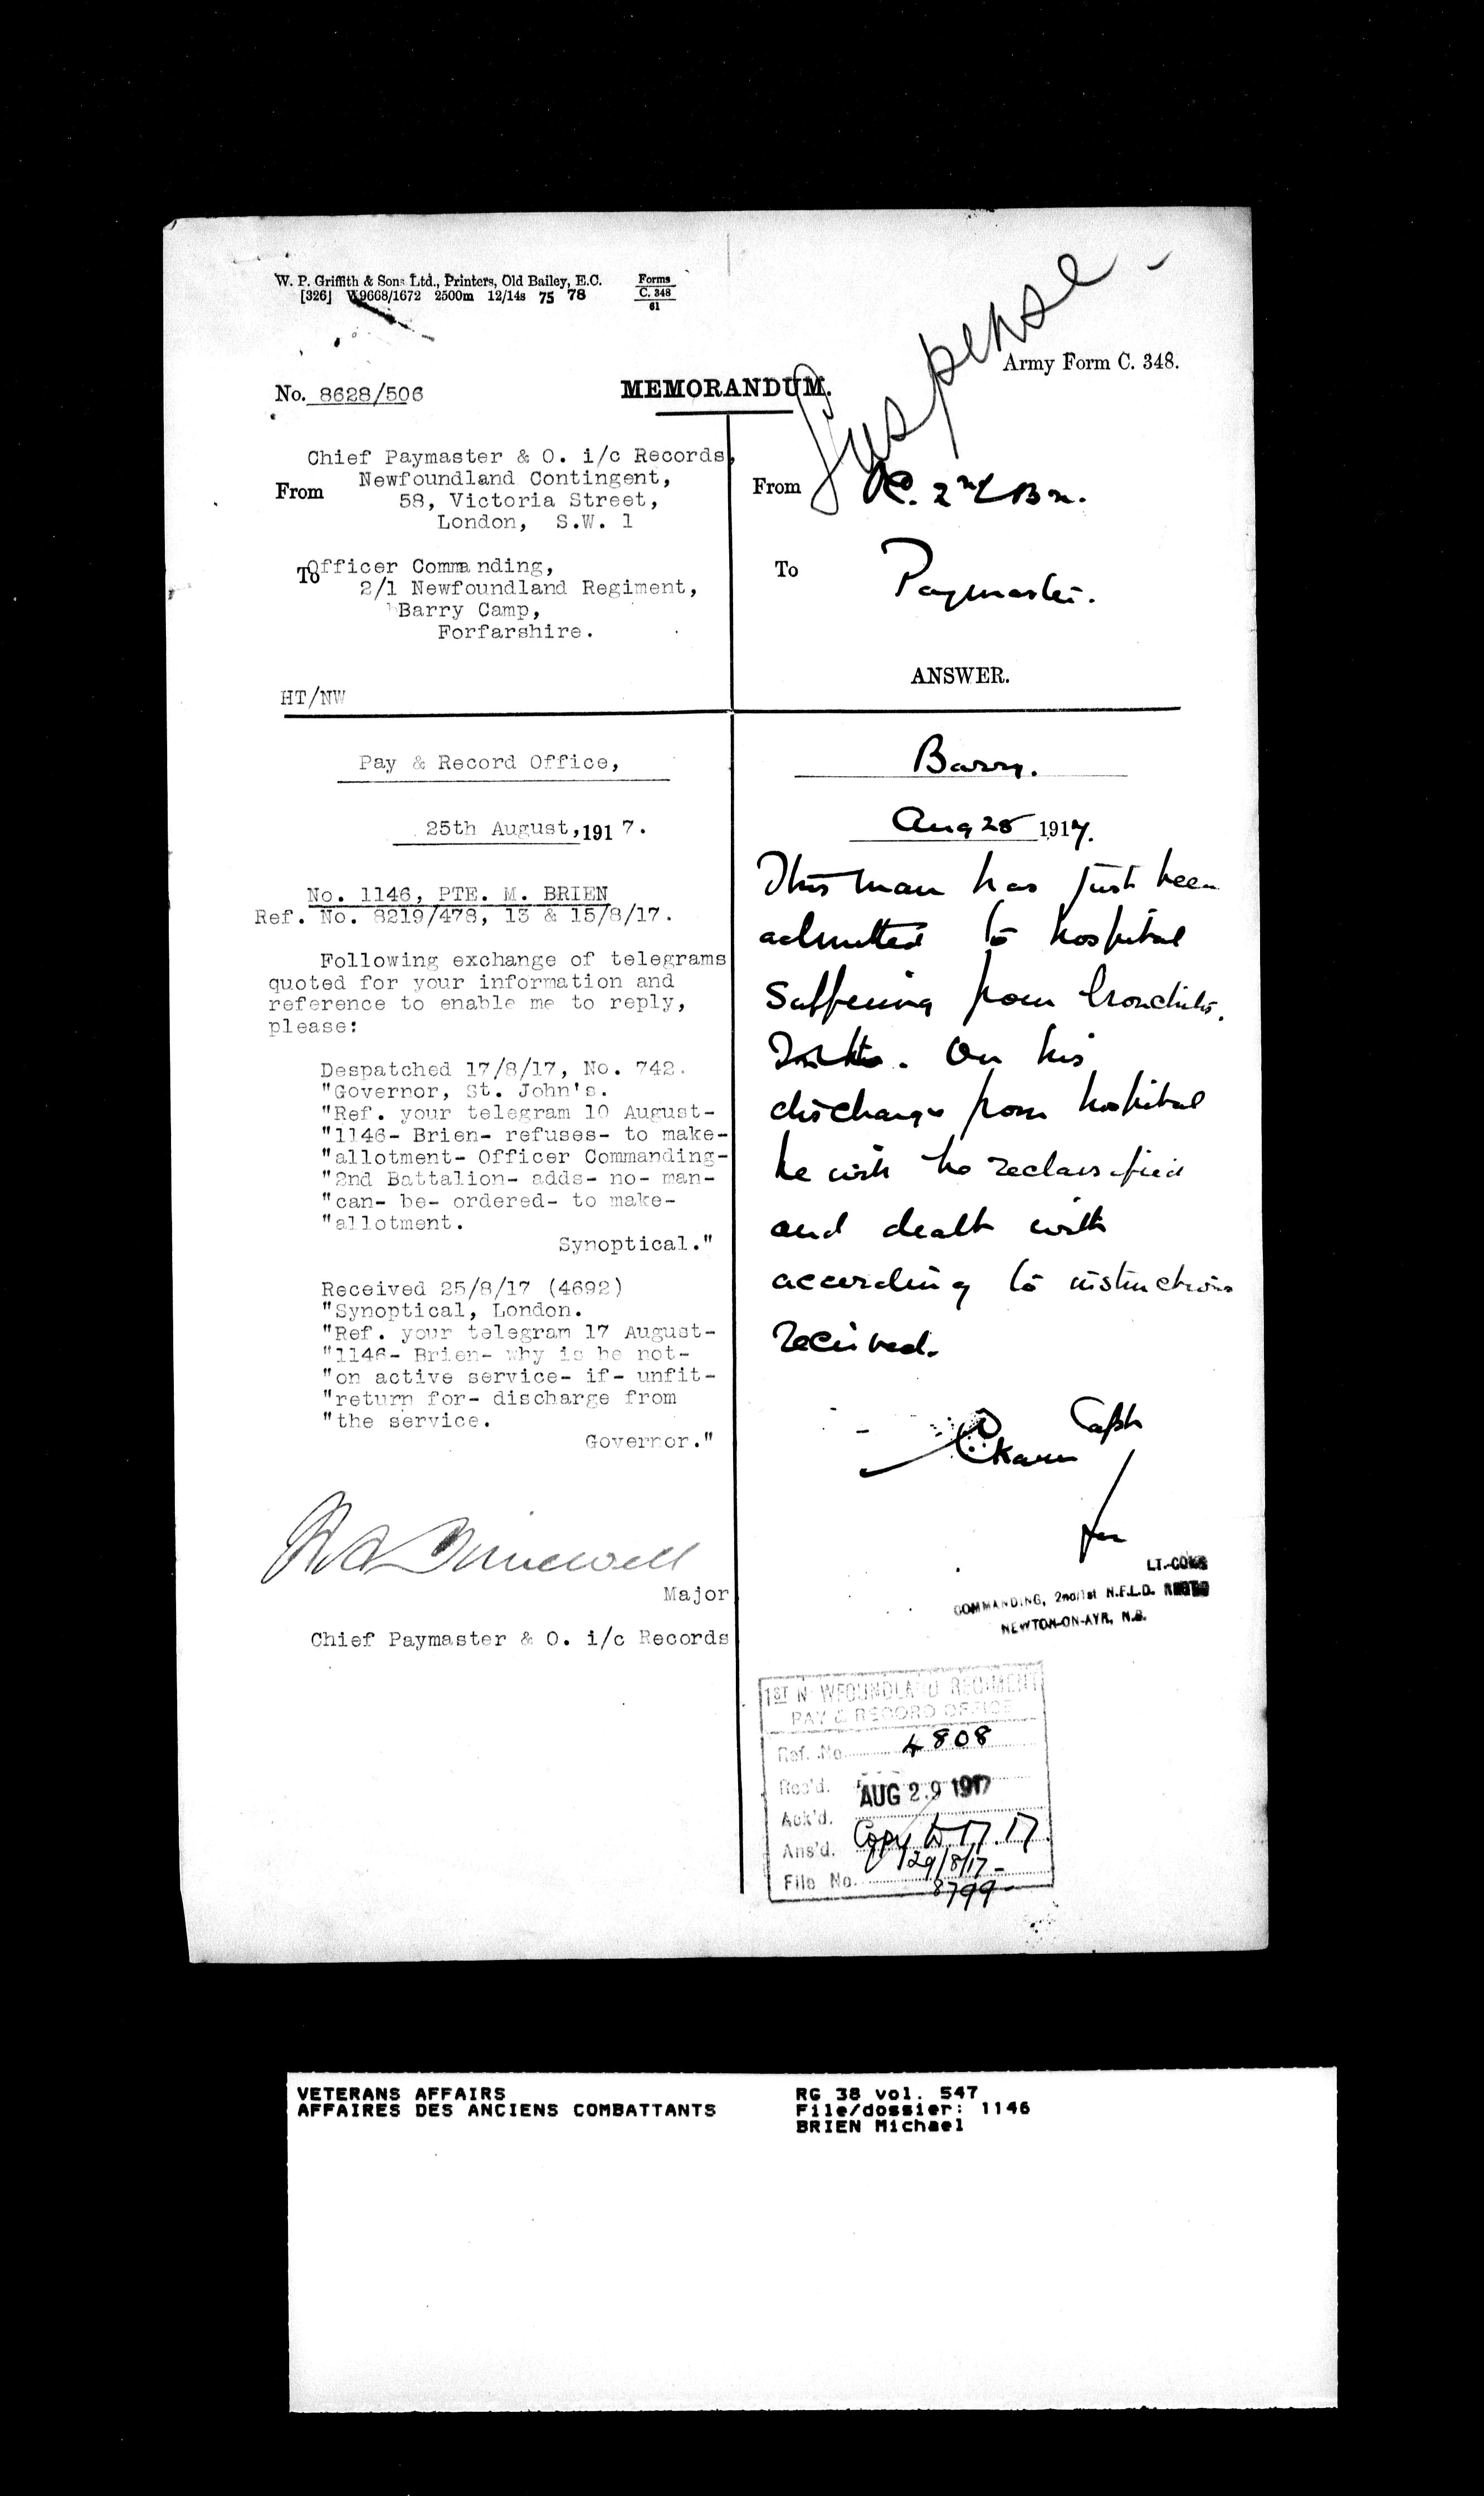 W. P. Griffith & Sons Ltd., Printers, Old Bailey, E.C.
[326] W9668/1672 2500m 12/14s 75 78
Forms
C. 348
61
Suspense
Army Form C. 348.
No. 8628/506
MEMORANDUM.
Chief Paymaster & O. i/c Records,
From Newfoundland Contingent,
58, Victoria Street,
London, S.W. 1
To Officer Commanding,
2/1 Newfoundland Regiment,
Barry Camp,
Forfarshire.
HT/NW
From OC. 2nd Bn.
To Paymaster.
ANSWER.
Pay & Record Office,
25th August, 1917.
No. 1146, PTE. M. BRIEN
Ref. No. 8219/478, 13 & 15/8/17.
Following exchange of telegrams
quoted for your information and
reference to enable me to reply,
please:
Despatched 17/8/17, No. 742.
"Governor, St. John's.
"Ref. your telegram 10 August-
"1146- Brien- refuses- to make-
"allotment- Officer Commanding-
"2nd Battalion- adds- no- man-
"can- be- ordered- to make-
"allotment.
Synoptical."
Received 25/8/17 (4692)
"Synoptical, London.
"Ref. your telegram 17 August-
"1146- Brien- why is he not-
"on active service- if- unfit-
"return for- discharge from
"the service.
Governor."
Major
Chief Paymaster & O. i/c Records
Barry.
Aug 28 1917.
This man has just been
admitted to hospital
suffering from bronchitis.
On his
discharge from hospital
he will be reclassified
and dealt with
according to instructions
received.
Capt
for
LT.-COL.
COMMANDING, 2nd/1st N.F.L.D. REGT
NEWTON-ON-AYR, N.B.
1ST NEWFOUNDLAND REGIMENT
PAY & RECORD OFFICE
Ref. No. 4808
Rec'd. AUG 29 1917
Ack'd.
Ans'd. Copy to
29/8/17-
File No. 8799-
VETERANS AFFAIRS
AFFAIRES DES ANCIENS COMBATTANTS
RG 38 vol. 547
File/dossier: 1146
BRIEN Michael